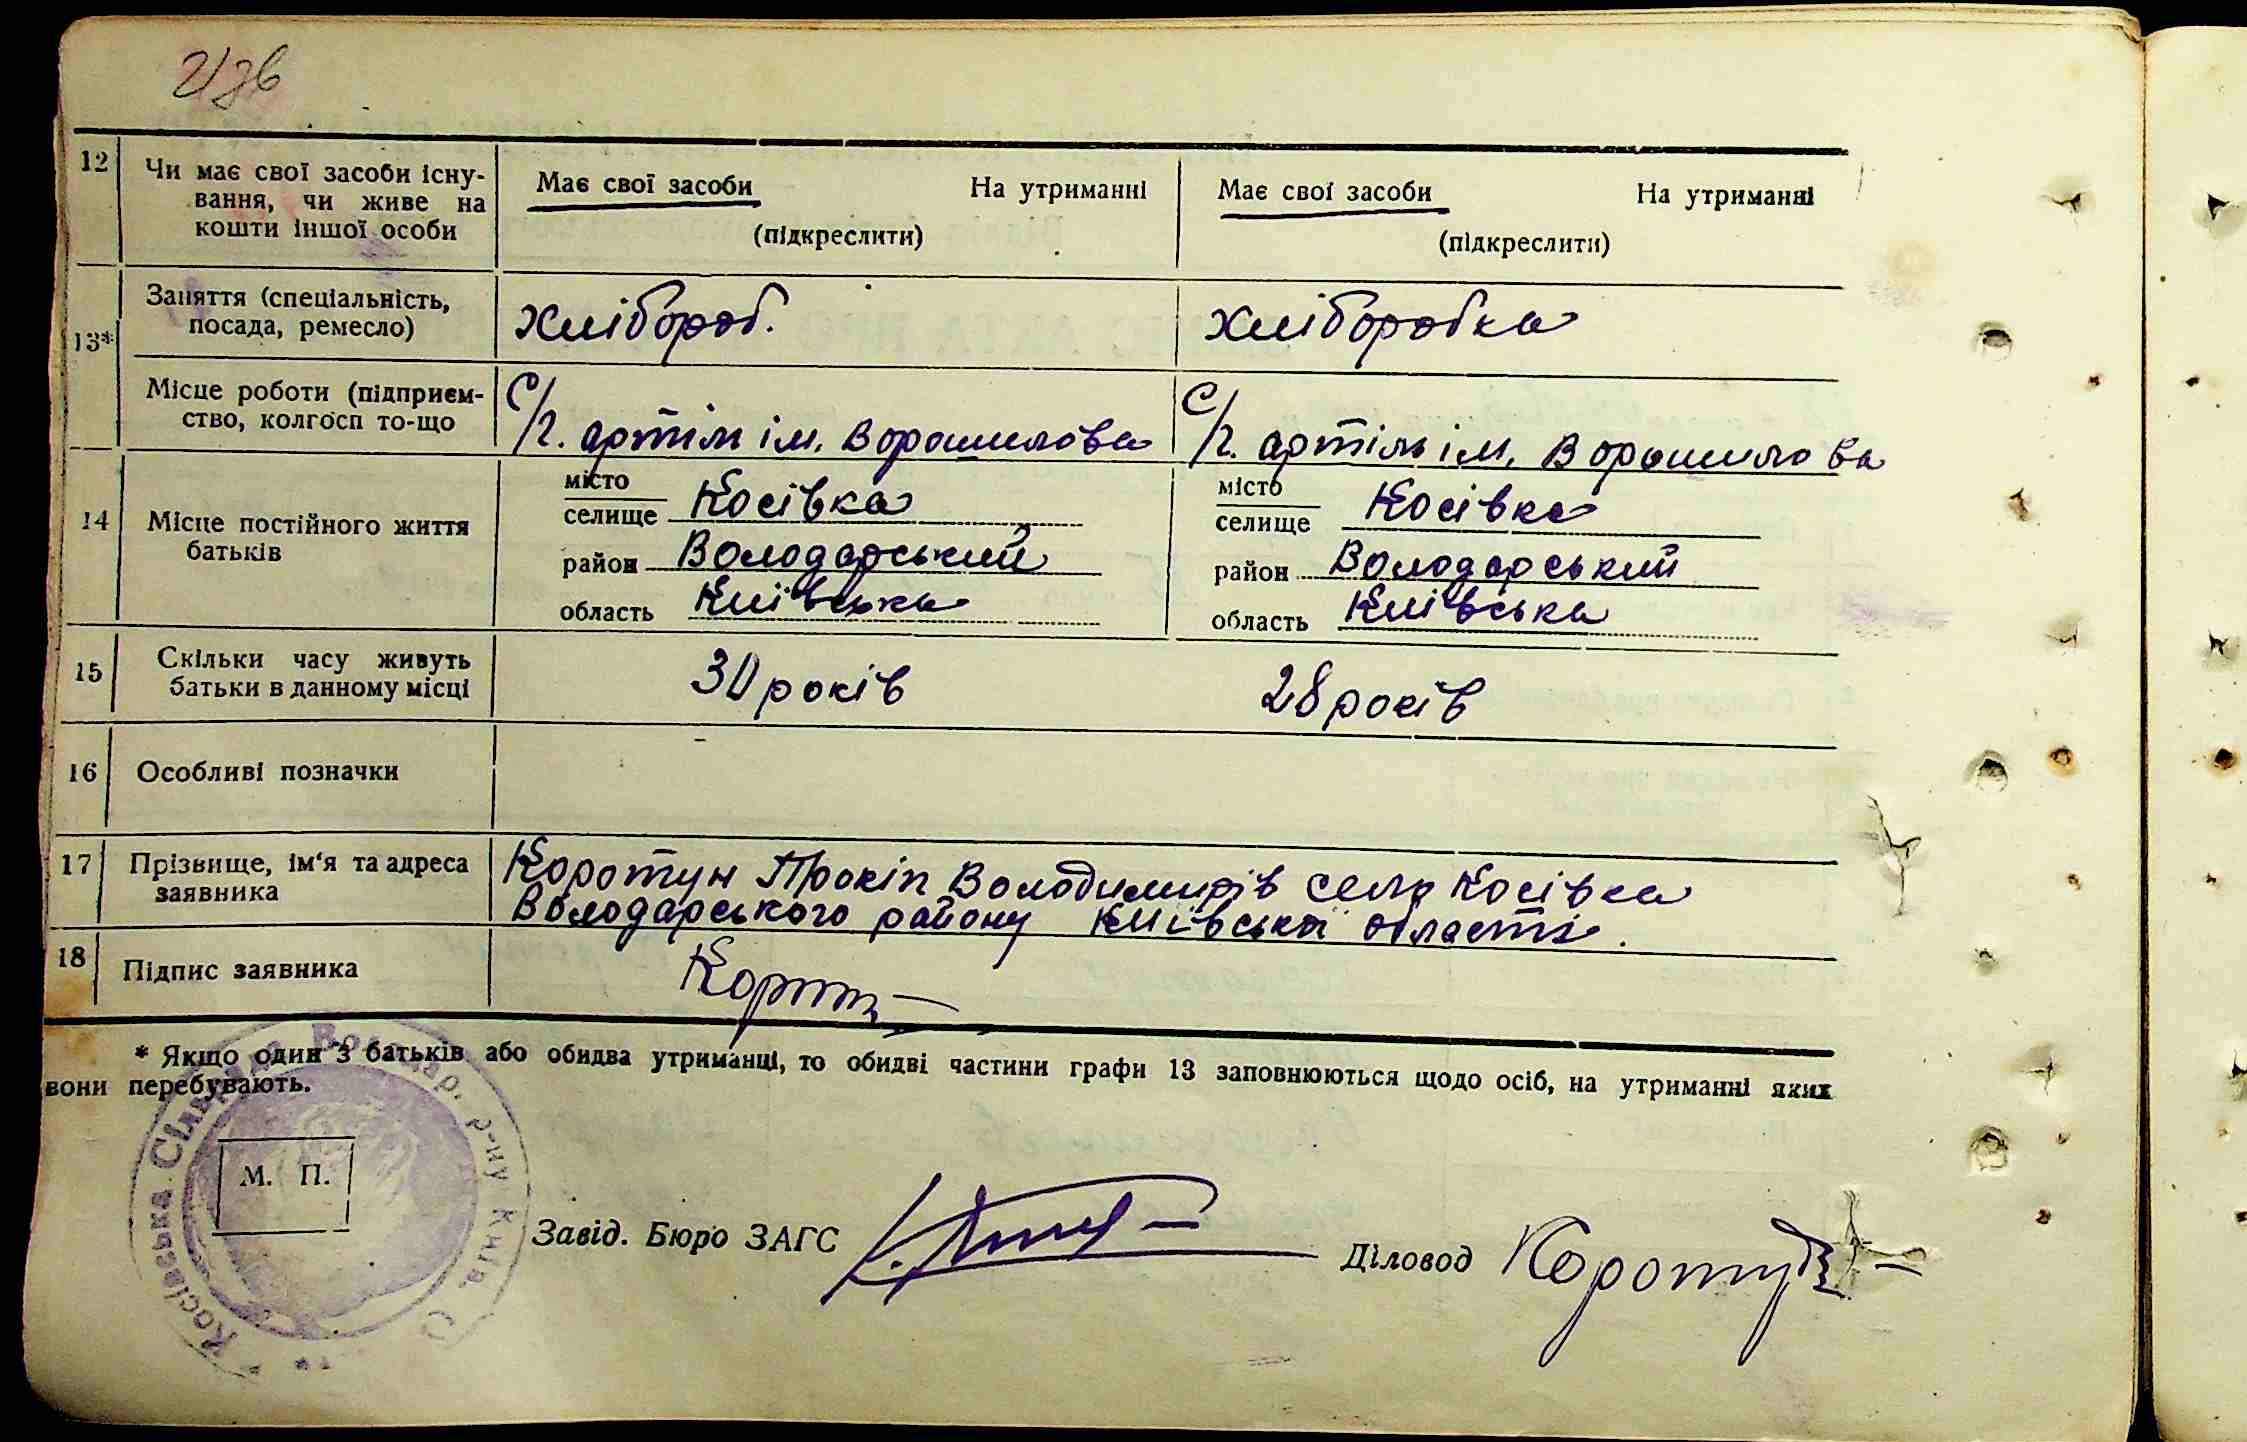 2/зв
12 Чи має свої засоби існу-
вання, чи живе на
кошти іншої особи
Має свої засоби На утриманні
(підкреслити)
Має свої засоби На утриманні
(підкреслити)
13* Заняття (спеціальність,
посада, ремесло)
хлібороб.
хліборобка
Місце роботи (підприєм-
ство, колгосп то-що
С/г. артіль ім. Ворошилова
С/г. артіль ім. Ворошилова
14 Місце постійного життя
батьків
місто
селище Косівка
район Володарський
область Київська
місто
селище Косівка
район Володарський
область Київська
15 Скільки часу живуть
батьки в данному місці
30 років
28 років
16 Особливі позначки
17 Прізвище, ім'я та адреса
заявника
Коротун Прокіп Володимирів село Косівка
Володарського району Київської області.
18 Підпис заявника
* Якщо один з батьків або обидва утриманці, то обидві частини графи 13 заповнюються щодо осіб, на утриманні яких
вони перебувають.
М. П.
Косівська Сільрада Володар. р-ну Київ.
Завід. Бюро ЗАГС
Діловод Коротун